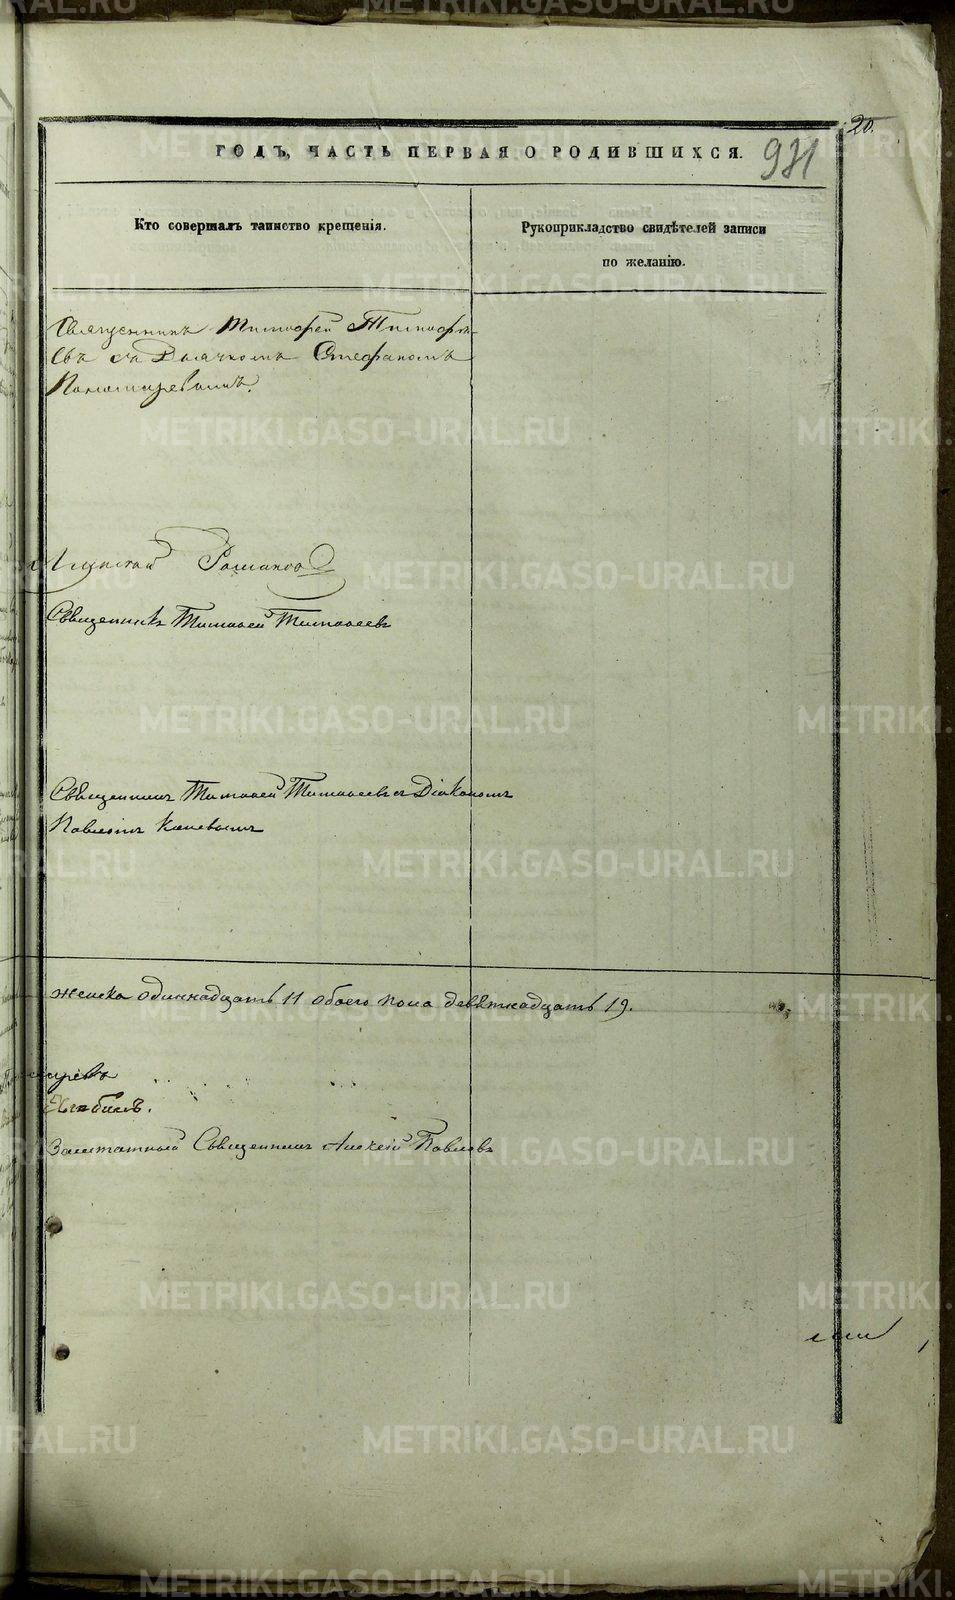 20.
ГОДЪ, ЧАСТЬ ПЕРВАЯ О РОДИВШИХСЯ.
931
Кто совершалъ таинство крещенія.
Рукоприкладство свидѣтелей записи
по желанію.
Священникъ Тимофей Тимофѣ-
евъ съ Дьячкомъ Стефаномъ
Пономаревымъ.
Романов
Священникъ Тимофей Тимофеевъ
Священникъ Тимофей Тимофеевъ съ Діакономъ
Павломъ
женска одиннадцать 11 обоего пола девѣтнадцать 19.
Заштатный Священникъ Алексѣй Павловъ
METRIKI.GASO-URAL.RU